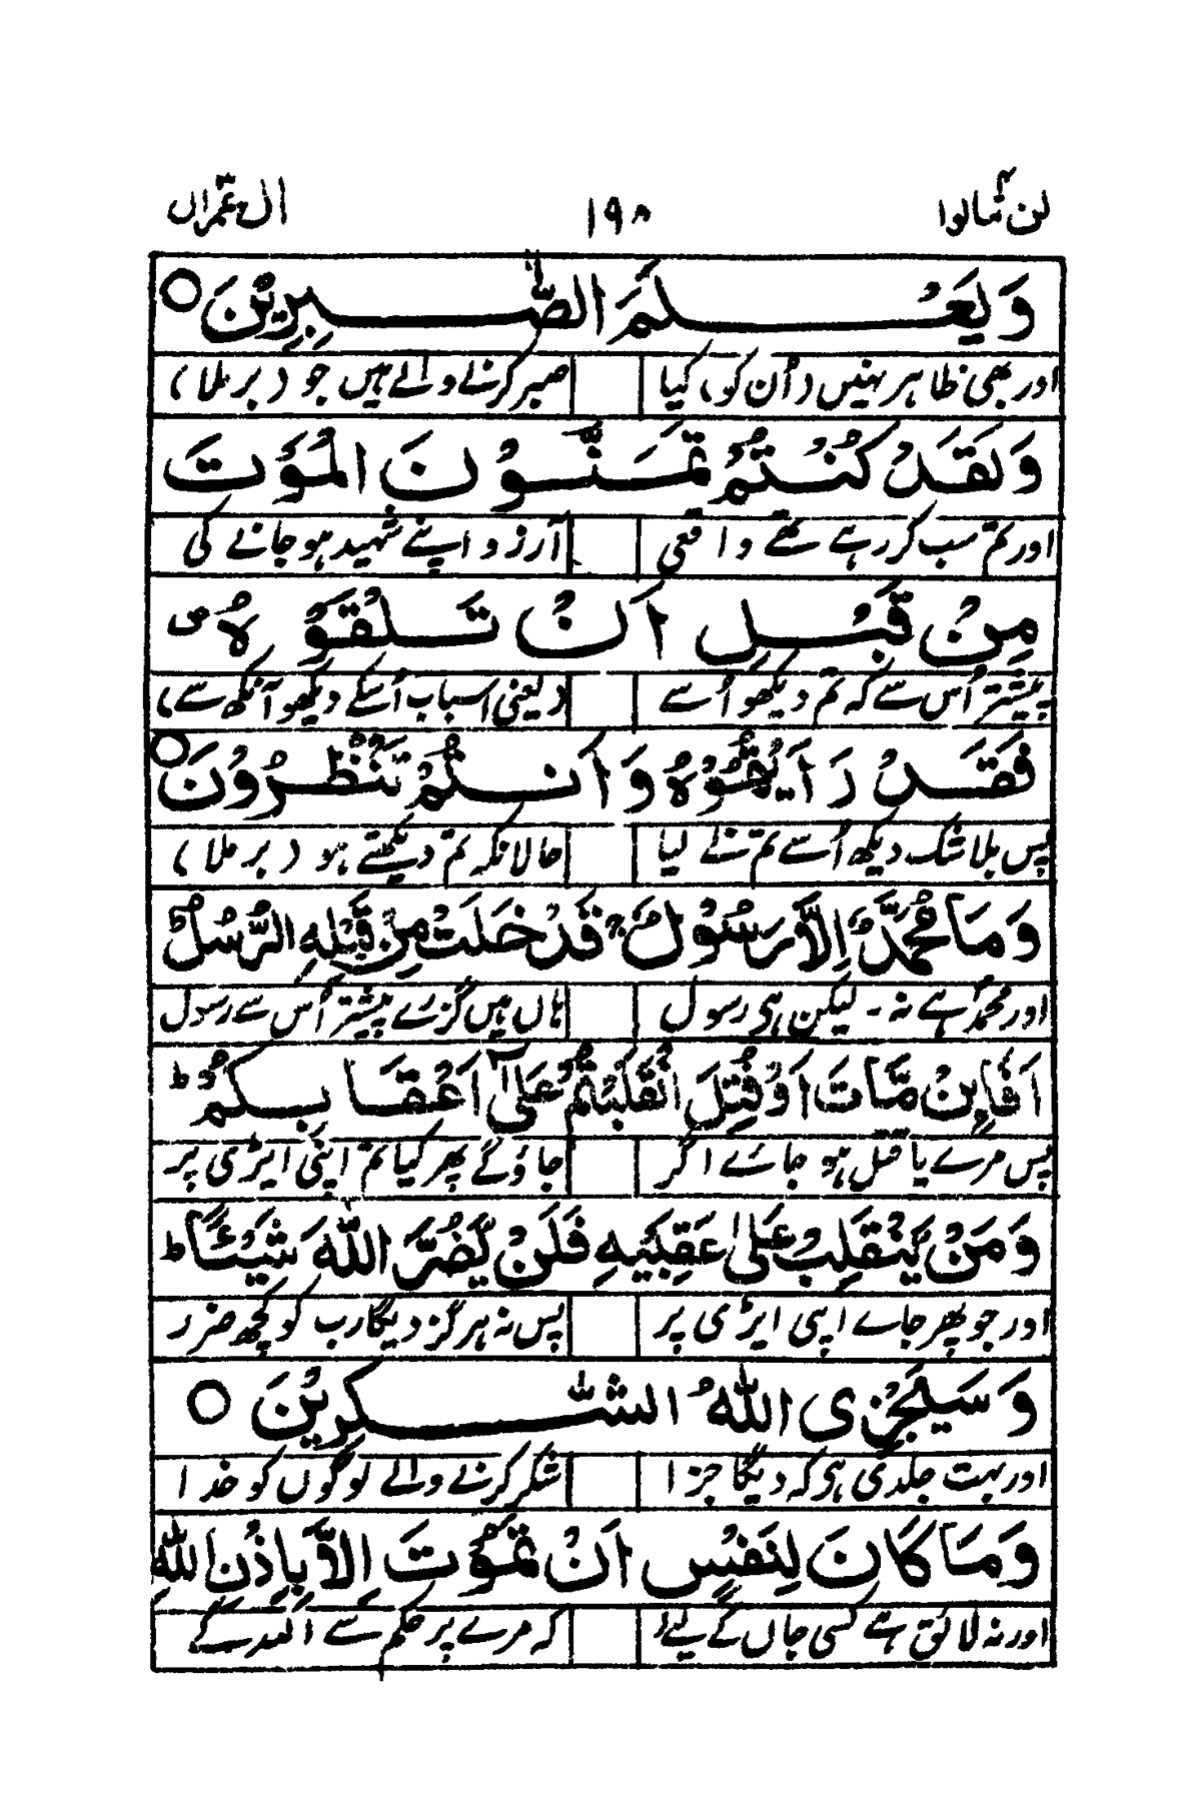 لن تنالوا ۴ ۱۹۸ اٰل عمران
وَيَعْلَمَ الصّٰبِرِيْنَ ○
اور بھی ظاہر نہیں (اُن کو) کیا صبر کرنے والے ہیں جو (بر ملا)
وَلَقَدْ كُنْتُمْ تَمَنَّوْنَ الْمَوْتَ
اور تم سب کر رہے تھے واقعی آرزو اپنے شہید ہو جانے کی
مِنْ قَبْلِ اَنْ تَلْقَوْهُ ص
پیشتر اُس سے کہ تم دیکھو اُسے (یعنی اسباب اُسکے دیکھو آنکھ سے)
فَقَدْ رَاَيْتُمُوْهُ وَاَنْتُمْ تَنْظُرُوْنَ ○
پس بلا شک دیکھ اُسے تم نے لیا حالانکہ تم دیکھتے ہو (بر ملا)
وَمَا مُحَمَّدٌ اِلَّا رَسُوْلٌ ج قَدْ خَلَتْ مِنْ قَبْلِهِ الرُّسُلُ ط
اور محمدؐ ہے نہ - لیکن ہی رسول ہاں ہیں گزرے پیشتر اُس سے رسول
اَفَا۠ئِنْ مَّاتَ اَوْ قُتِلَ انْقَلَبْتُمْ عَلٰٓى اَعْقَابِكُمْ ط
پس مرے یا قتل ہو جائے اگر جاؤ گے پھر کیا تم اپنی ایڑی پر
وَمَنْ يَّنْقَلِبْ عَلٰى عَقِبَيْهِ فَلَنْ يَّضُرَّ اللّٰهَ شَيْـًٔا ط
اور جو پھر جاے اپنی ایڑی پر پس نہ ہرگز دیگا رب کو کچھ ضرر
وَسَيَجْزِى اللّٰهُ الشّٰكِرِيْنَ ○
اور بہت جلدی ہی کہ دیگا جزا شکر کرنے والے لوگوں کو خدا
وَمَا كَانَ لِنَفْسٍ اَنْ تَمُوْتَ اِلَّا بِاِذْنِ اللّٰهِ
اور نہ لائق ہے کسی جاں کے لیے کہ مرے پر حکم سے اللہ کے